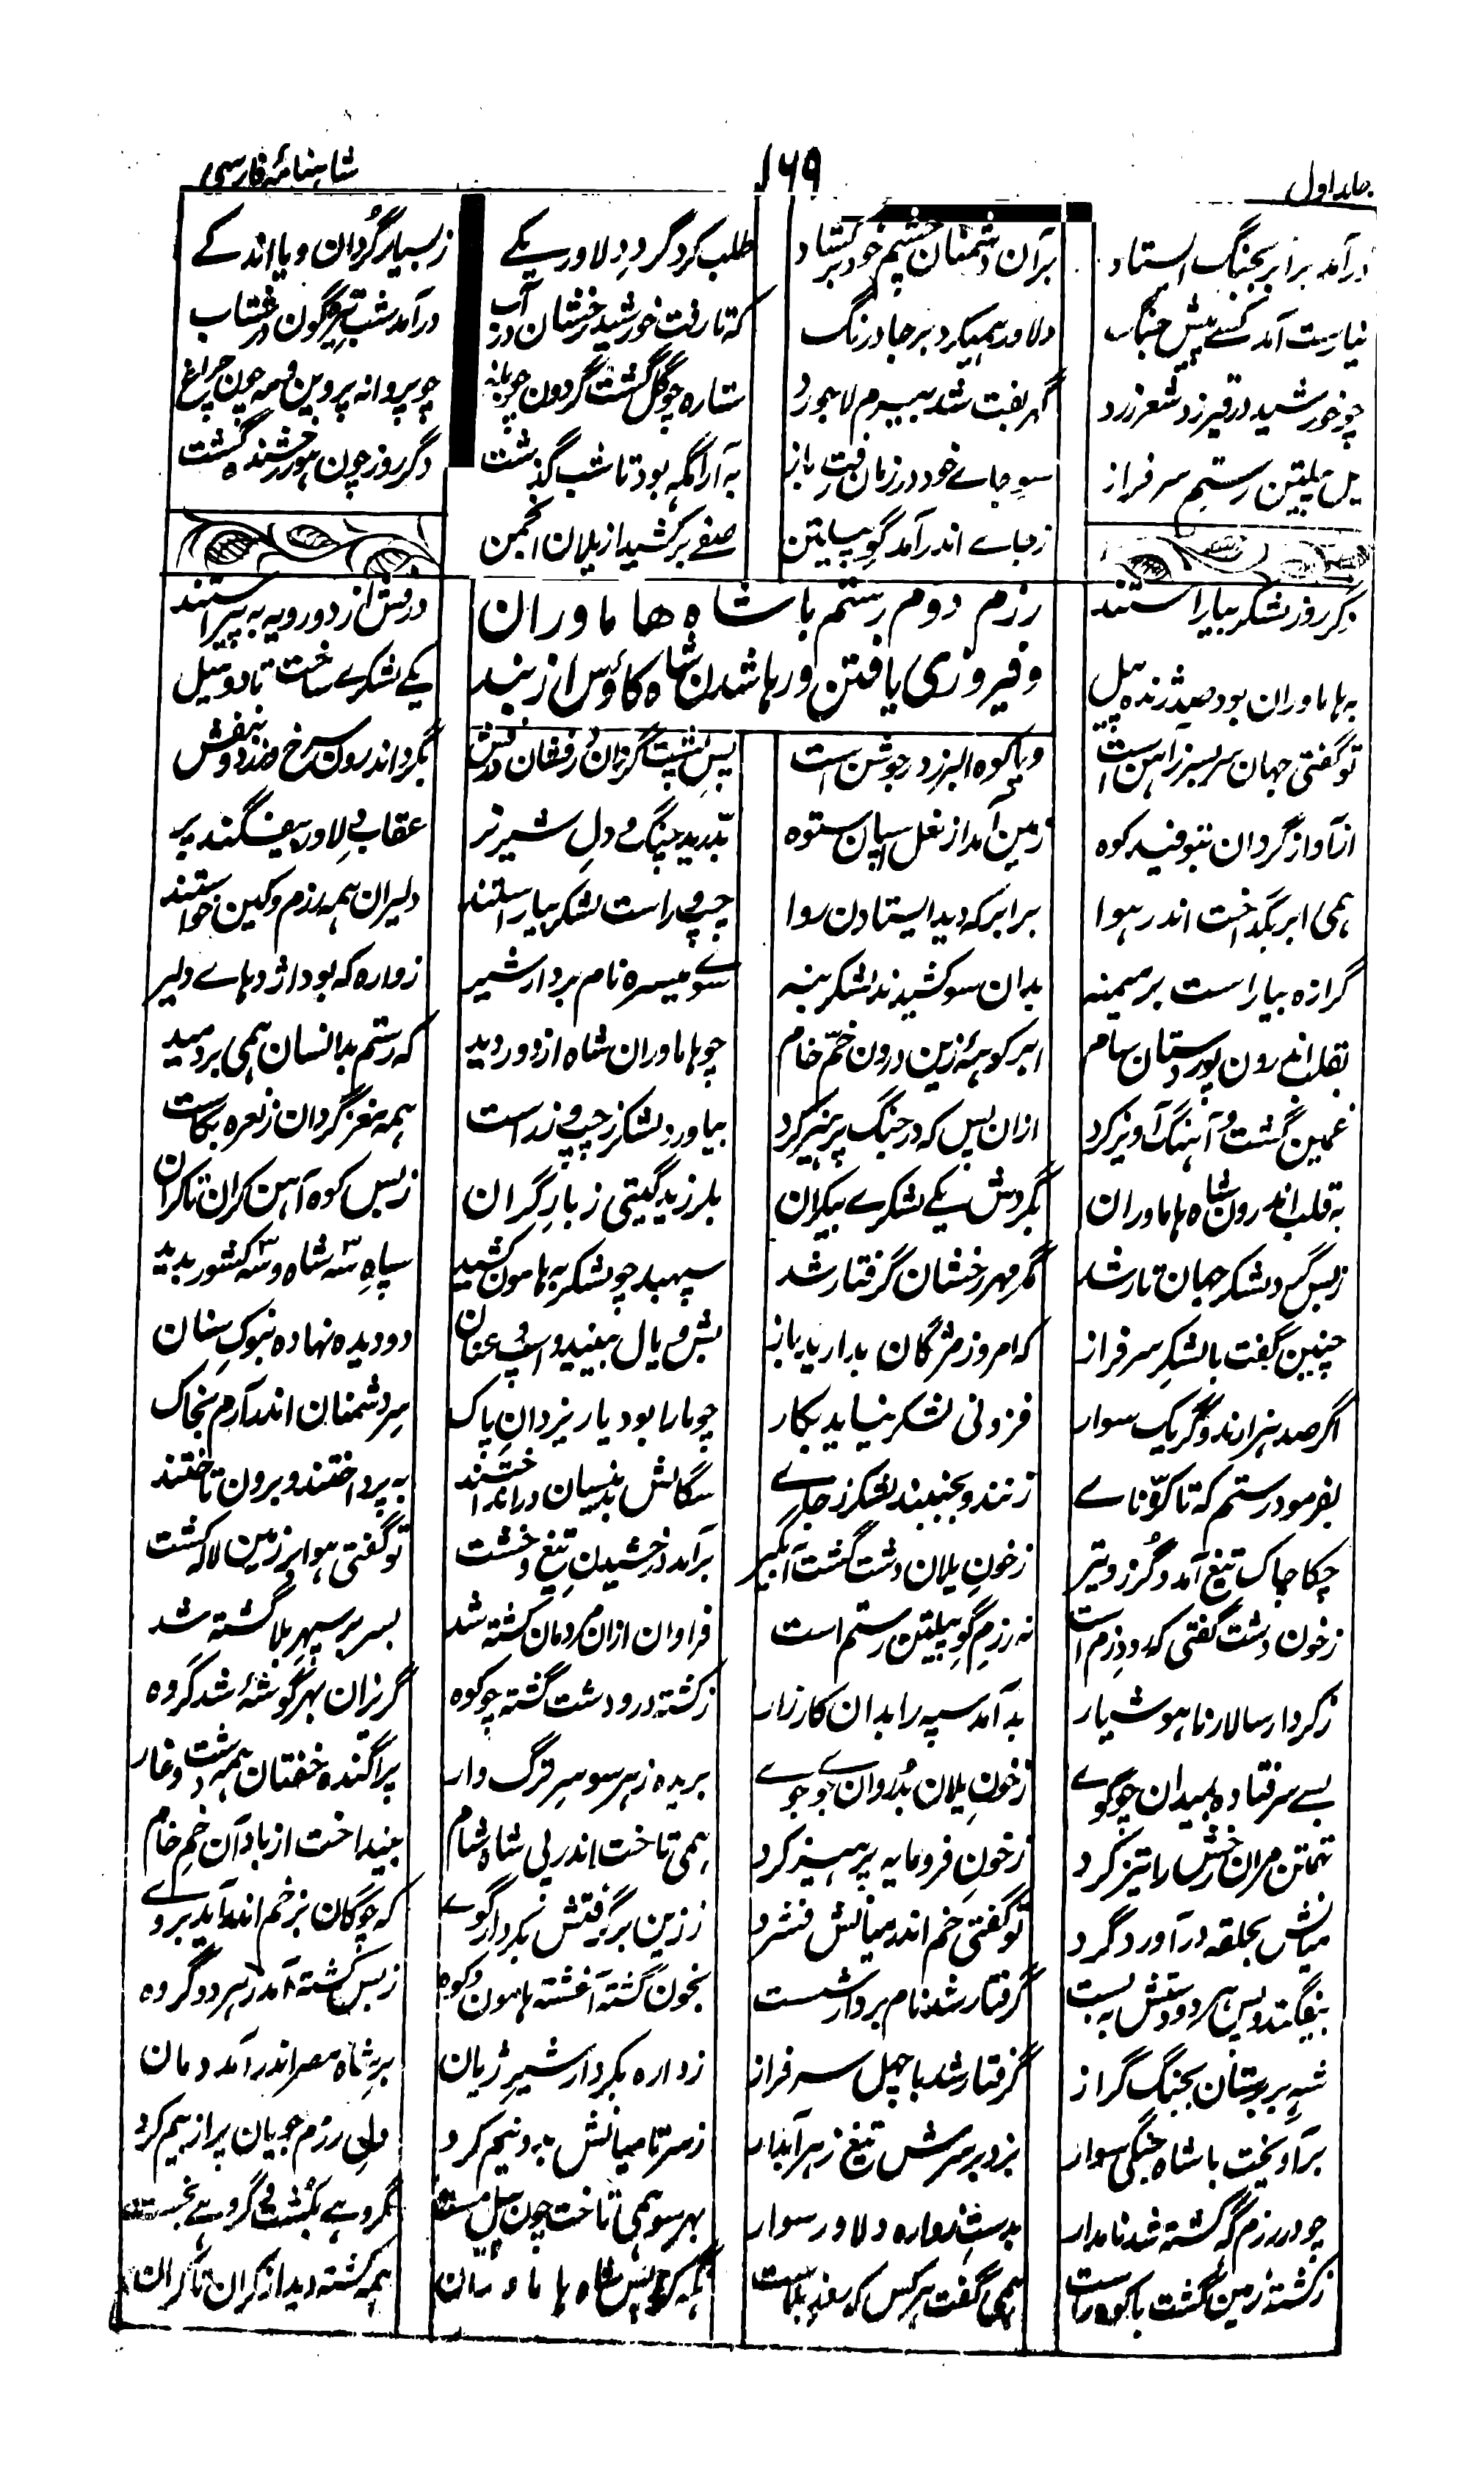 جلد اول ۱۶۹ شاہنامۂ فارسی
درآمد برابر بجنگ ایستاد برآن دشمنان چشم خود برکشاد طلب کرد گرد دلاور یکے ز بسیار گُردان و یا اندکے
نیارست آمد کسے پیش جنگ دلاور همیکرد برجا درنگ که تا رفت خورشید رخشان در آب درآمد شب تیرہ گون در شتاب
چو خورشید در قیر زد شعر زرد گهربفت شد بیرم لاجورد ستاره چو گل گشت گردون چو باغ چو پروانه پروین و مه چون چراغ
یل پیلتن رستم سرفراز سوے جاے خود در زمان رفت باز به آرامگہ بود تا شب گذشت دگر روز چون هور رخشنده گشت
ز جاے اندر آمد گو پیلتن صفے برکشید از یلان انجمن
رزم دوم رستم با شاه هاماوران
و فیروزی یافتن و رها شدن شاه کاؤس از بند
دگر روز لشکر بیاراستند درفش از دو رویه به پیراستند
به هاماوران بود صد ژنده پیل یکے لشکرے ساخت تا دو میل
تو گفتی جهان سربسر ز آهن است و یا کوه البرز در جوشن است پس پشت گردان درفشان درفش بگرد اندرون سرخ و زرد و بنفش
از آواز گردان بتوفید کوه زمین آمد از نعل اسپان ستوه بدرید چنگ و دل شیر نر عقاب دلاور بیفگند پر
همی ابر بگداخت اندر هوا برابر که دید ایستادن روا چپ و راست لشکر بیاراستند دلیران همه رزم و کین خواستند
گرازه بیاراست بر میمنه بدان سو کشیدند لشکر بنه سوے میسره نام بردار شیر زواره که بود اژدهاے دلیر
بقلب اندرون پور دستان سام ابر کوههٔ زین درون خمّ خام چو هاماوران شاه از دور دید که رستم بدانسان همی بردمید
غمین گشت و آهنگ آویز کرد ازان پس که در جنگ پرهیز کرد بیاورد لشکر ز چپ و ز راست همه مغز گردان ز نعره بکاست
به قلب اندرون شاه هاماوران بگردش یکے لشکرے بیکران بلرزید گیتی ز بارِ گران ز بس کوه آهن کران تا کران
ز بس گرد لشکر جهان تار شد مگر مهر رخشان گرفتار شد سپهبد چو لشکر به هامون کشید سپاهِ سه شاه و سه کشور بدید
چنین گفت با لشکرِ سرفراز که امروز مژگان مدارید باز بش و یال بینید و اسپ و عنان دو دیده نهاده بنوکِ سنان
اگر صد هزارند و گر یک سوار فزونی لشکر نیاید بکار چو ما را بود یار یزدانِ پاک سر دشمنان اندر آرم بخاک
بفرمود رستم که تا کرّناے زنند و بجنبند لشکر ز جاے سگالش بدینسان درانداختند به پرداختند و برون تاختند
چکاچاک تیغ آمد و گُرز و تیر ز خونِ یلان دشت گشت آبگیر برآمد درخشیدنِ تیغ و خشت تو گفتی هوا بر زمین لاله کشت
ز خون دشت گفتی که رود زم است نه رزمِ گو پیلتن رستم است فراوان ازان مردمان کشته شد بسر بر سپهر بلا گشته شد
ز کردار سالار ناهوشیار بد آمد سپه را بدان کارزار ز کشته در و دشت گشته چو کوه گریزان بهر گوشهٔ شد گروه
بسے سر فتاده بمیدان چو گوے ز خونِ یلان بُد روان جوے جوے بریده ز هر سو سرِ ترگ دار پراگنده خفتان همه دشت و غار
تهمتن مران رخش را تیز کرد ز خونِ فرومایه پرهیز کرد همی تاخت اندر پی شاه شام بینداخت از باد آن خمِ خام
میانش بحلقه درآورد گرد تو گفتی خم اندر میانش فشرد ز زین برگرفتش بکردار گوے که چوگان بزخم اندر آید بروے
بیفگند و پس هر دو دستش به بست گرفتار شد نام بردار شست بخون کشته آغشته هامون و کوه ز بس کشته آمد ز هر دو گروه
شہ بربرستان بجنگ گراز گرفتار شد با چهل سرفراز زواره بکردار شیرِ ژیان برِ شاه مصر اندر آمد دمان
برآویخت با شاه جنگی سوار بزد بر سرش تیغ زهر آبدار ز سر تا میانش به دو نیم کرد دلِ رزم جویان پر از بیم کرد
چو در رزم گه کشته شد نامدار بدست زواره دلاور سوار بهر سو همی تاخت چون پیل مست گروهے بکشت و گروهے بخست
ز کشته زمین گشت با کوه راست همی گفت هر کس که نگه کرد پس شاه هاماوران همه کشته دید از کران تا کران